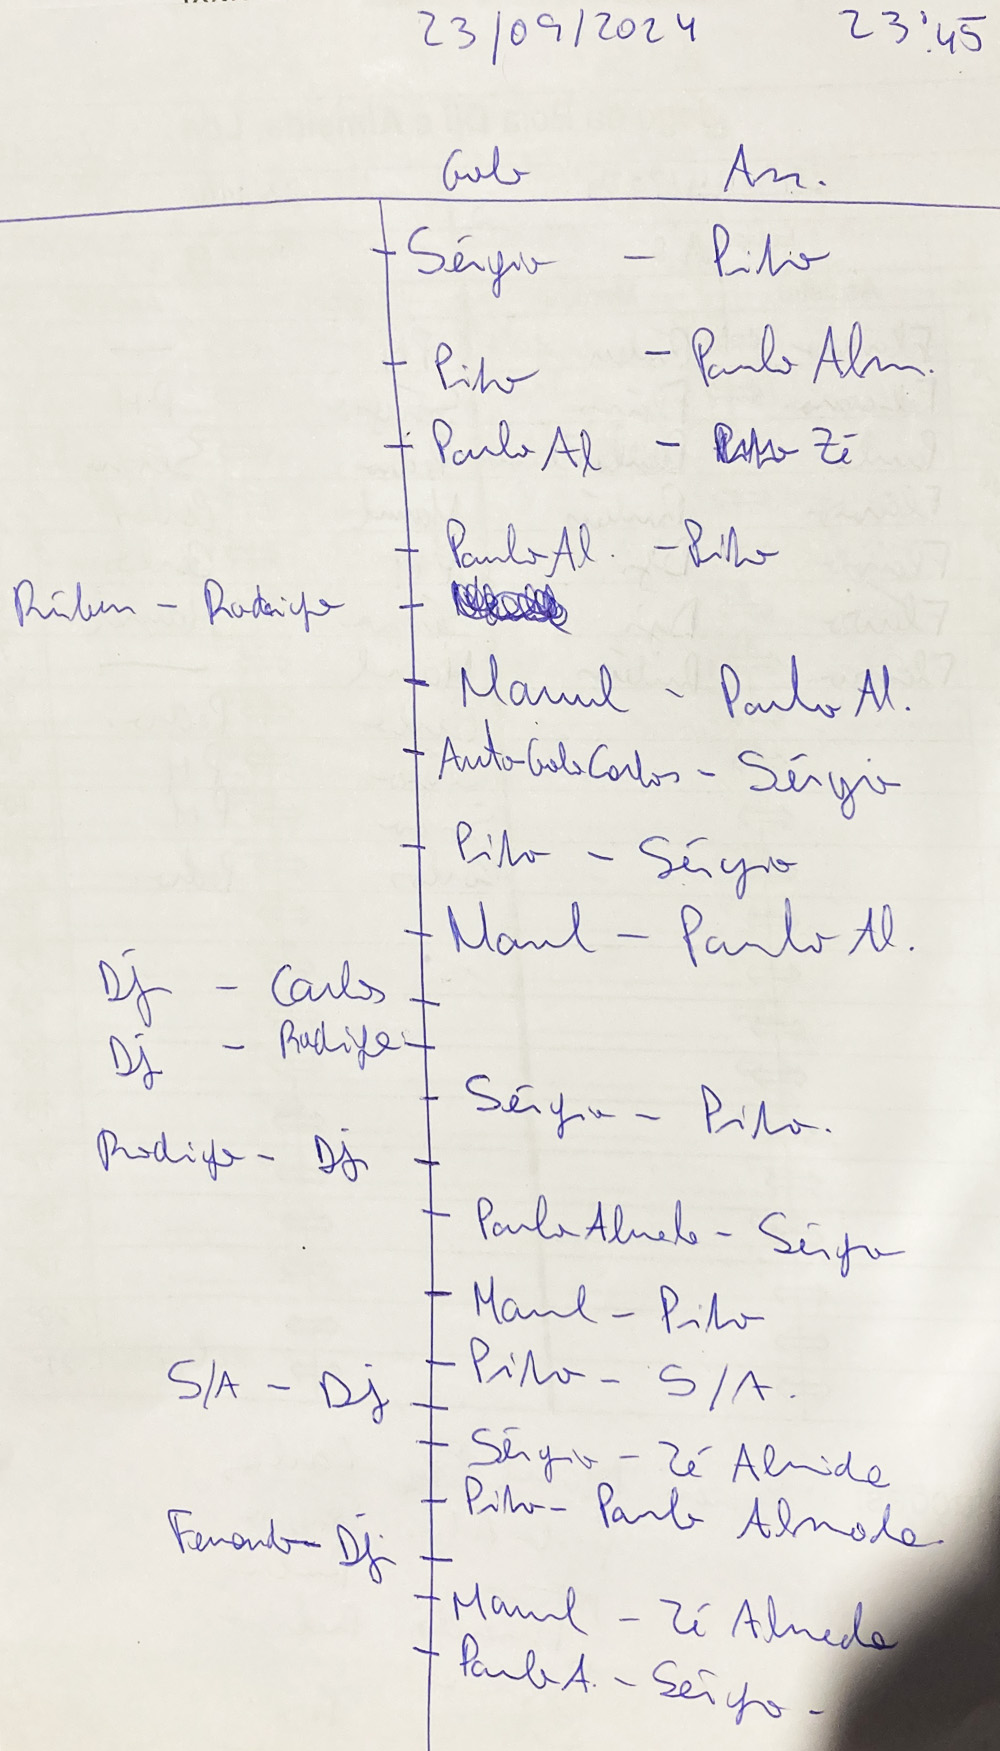 23/09/2024 23:45
Golo Ass.
Sérgio - Pitio
Pitio - Paulo Alm.
Paulo Al - Zé
Paulo Al. - Pitio
Rúben - Rodrigo
Manuel - Paulo Al.
Auto-Golo Carlos - Sérgio
Pitio - Sérgio
Manuel - Paulo Al.
Dj - Carlos
Dj - Rodrigo
Sérgio - Pitio.
Rodrigo - Dj
Paulo Almeida - Sérgio
Manuel - Pitio
Pitio - S/A.
S/A - Dj
Sérgio - Zé Almeida
Pitio - Paulo Almeida
Fernando - Dj
Manuel - Zé Almeida
Paulo A. - Sérgio -